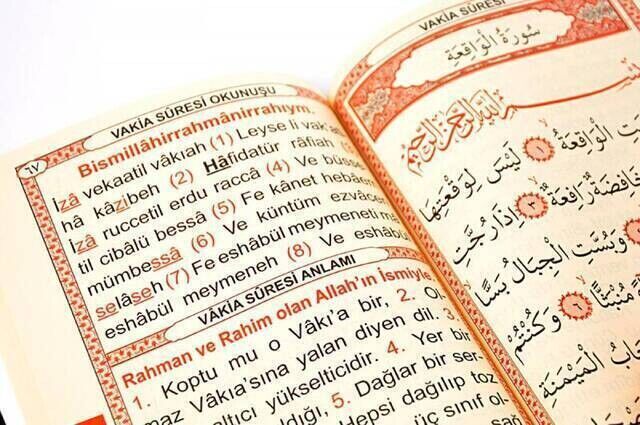 VAKİA SÛRESİ OKUNUŞU
Bismillâhirrahmânirrahıym.
İzâ vekaatil vâkıah (1) Leyse li vak'a
hâ kâzibeh (2) Hâfidatür râfiah
İzâ ruccetil erdu raccâ (4) Ve büsse
til cibâlü bessâ (5) Fe kânet hebâen
mümbessâ (6) Ve küntüm ezvâcen
selâseh (7) Fe eshâbül meymeneti ma
eshâbül meymeneh (8) Ve eshâbü
VÂKİA SÛRESİ ANLAMI
Rahman ve Rahim olan Allah'ın İsmiyle
1. Koptu mu o Vâkı'a bir, 2. Ol-
maz Vâkıa'sına yalan diyen dil. 3.
altıcı yükselticidir. 4. Yer bir
ldığı, 5. Dağlar bir ser-
Hepsi dağılıp toz
üç sınıf ol-
sağ
VAKİA SÛRESİ
سُورَةُ الْوَاقِعَةِ
بِسْمِ اللَّهِ الرَّحْمَنِ الرَّحِيمِ
الْوَاقِعَةُ ١ لَيْسَ لِوَقْعَتِهَا
خَافِضَةٌ رَافِعَةٌ ٣ إِذَا رُجَّتِ
وَبُسَّتِ الْجِبَالُ بَسًّا
مُنْبَثًّا ٦ وَكُنْتُمْ
الْمَيْمَنَةِ